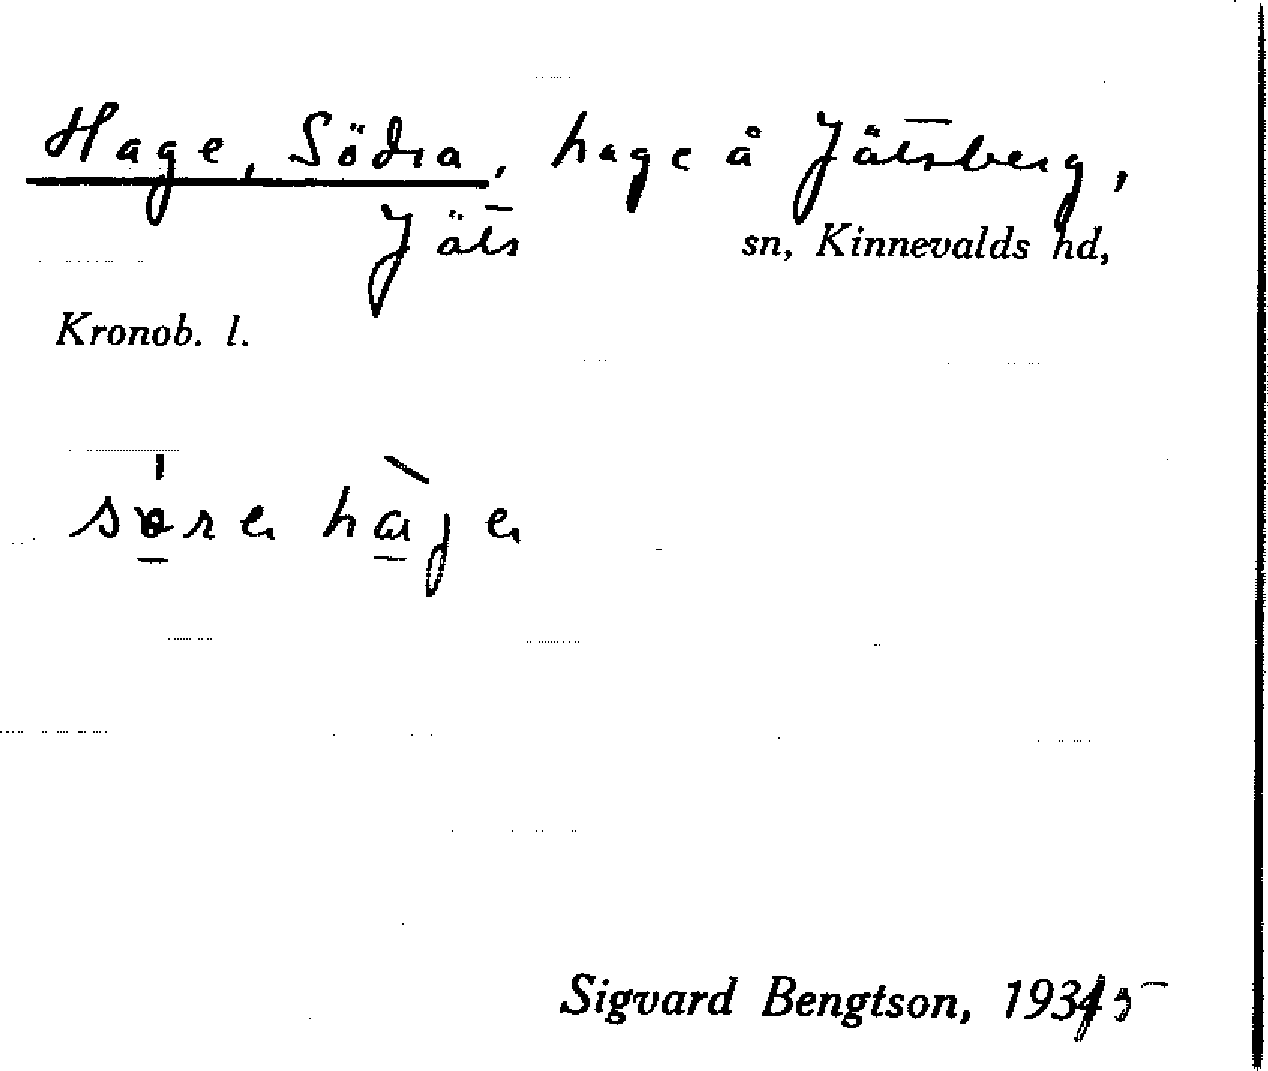 Hage, Södra, hage å Jätsberg,
Jäts sn, Kinnevalds hd,
Kronob. l.
søren hɑgen
Sigvard Bengtson, 1935